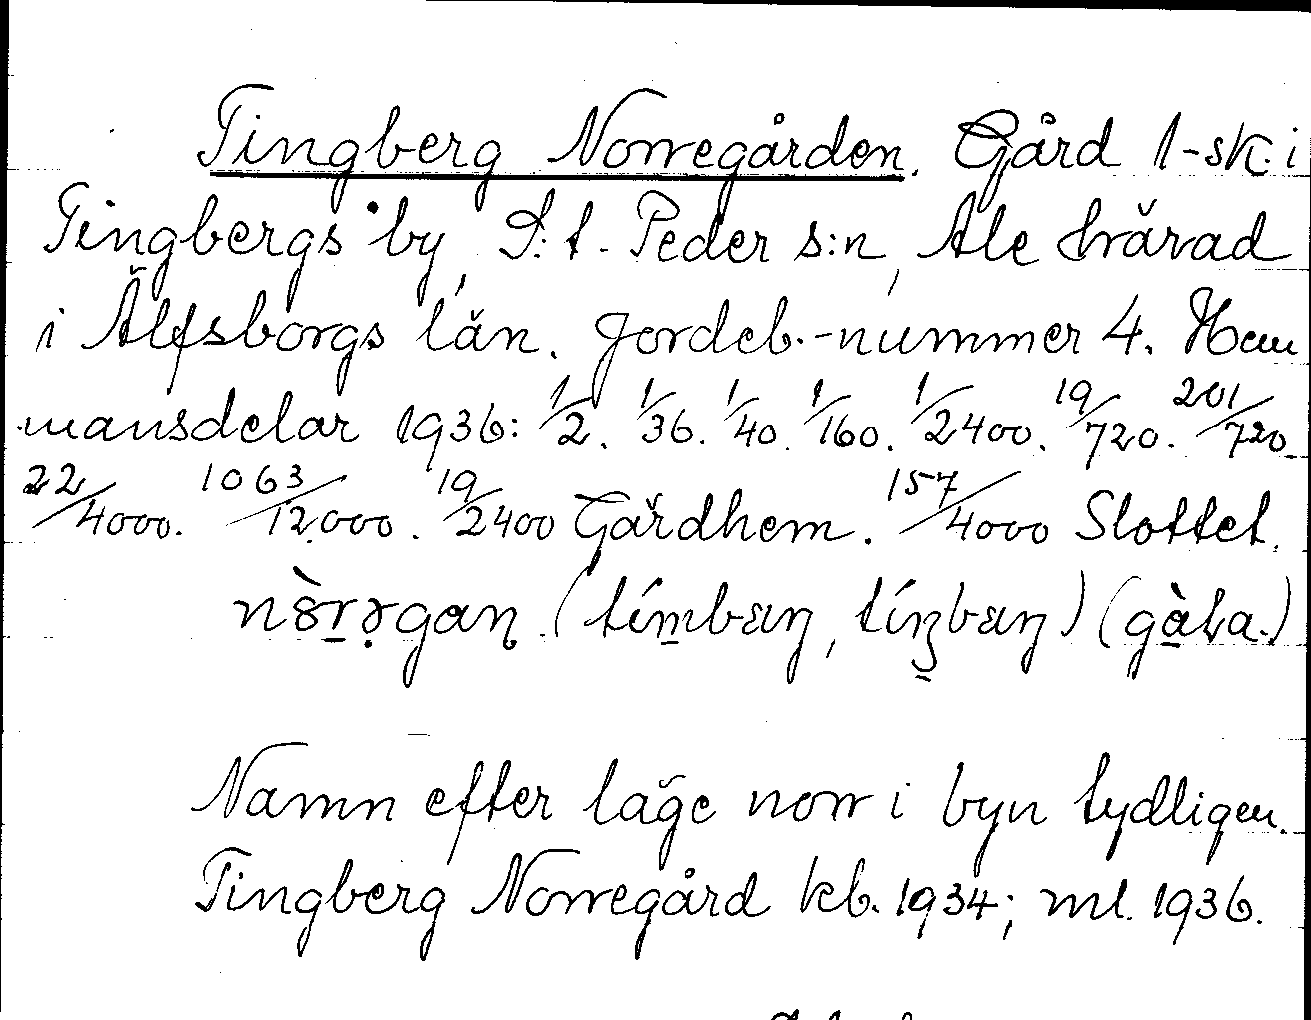 Tingberg Norregården. Gård 1-sk. i
Tingbergs by, S:t Peder s:n, Ale härad
i Älfsborgs län. Jordeb.-nummer 4. Hem
mansdelar 1936: 1/2. 1/36. 1/40. 1/160. 1/2400. 19/720. 201/720.
22/4000. 1063/12000. 19/2400 Gärdhem. 157/4000 Slottet.
Namn efter läge norr i byn tydligen.
Tingberg Norregård kb. 1934; ml. 1936.